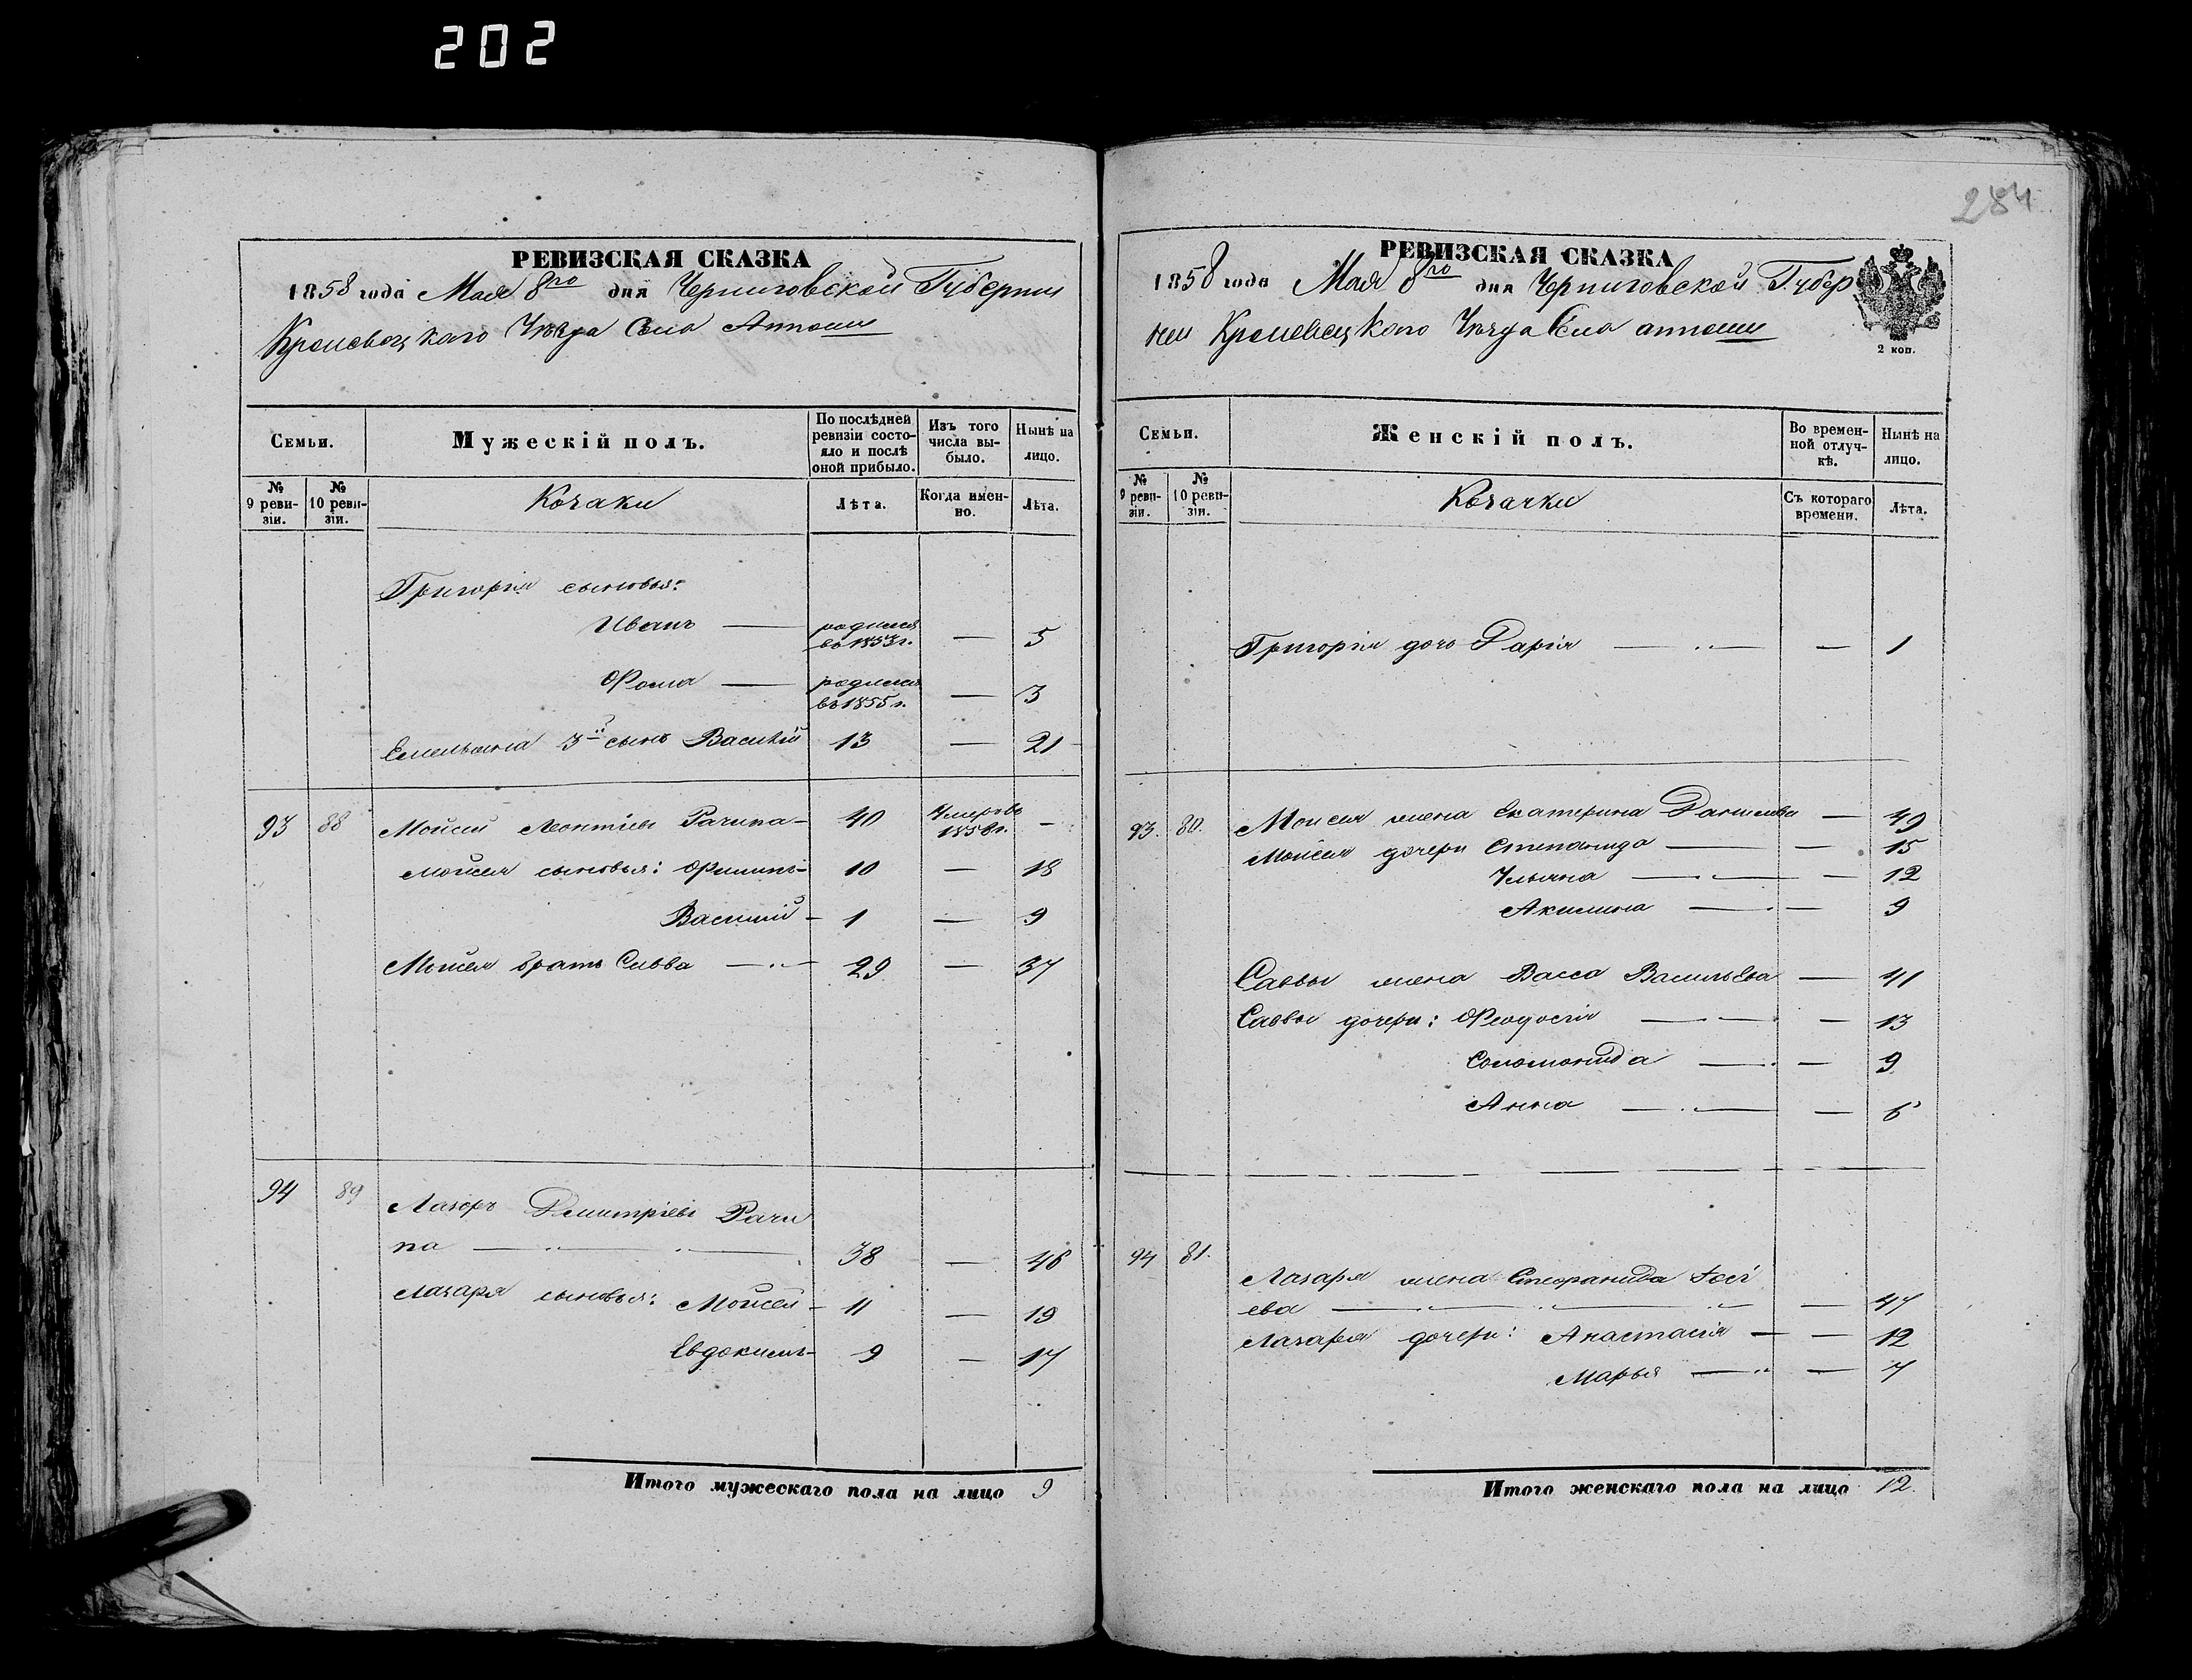 202
284
РЕВИЗСКАЯ СКАЗКА
1858 года Мая 8го дня Черниговской Губернии
Кролевецкаго Уѣзда Села
Семьи.
Мужескій полъ.
По послѣдней ревизіи состо-
яло и послѣ
оной прибыло.
Изъ того
числа вы-
было.
Нынѣ на
лицо.
№
9 реви-
зіи.
№
10 реви-
зіи.
Козаки
Лѣта.
Когда имен-
но.
Лѣта.
Григорія сыновья:
Иванъ — родился въ 1853 г. — 5
Фома — родился въ 1855 г. — 3
Емельяна 3й сынъ Василій 13 — 21
93 88 Мойсей Леонтіевъ Рачипа - 40 Умеръ въ 185 г. -
Мойсея сыновья: Филипъ - 10 — 18
Василій - 1 — 9
Мойсея братъ Савва — 29 — 37
94 89 Лазорь Дмитріевъ Рачи
па — 38 — 46
Лазаря сыновья: Мойсей - 11 — 19
Евдокимъ - 9 — 17
Итого мужескаго пола на лицо 9
РЕВИЗСКАЯ СКАЗКА
1858 года Мая 8го дня Черниговской Губер
ніи Кролевецкаго Уѣзда Села
2 коп.
Семьи.
Женскій полъ.
Во времен-
ной отлуч-
кѣ.
Нынѣ на
лицо.
№
9 реви-
зіи.
№
10 реви-
зіи.
Козачки
Съ котораго
времени.
Лѣта.
Григорія дочь Дарія — — 1
93. 80. Мойсея жена Екатерина Данилова — 49
Мойсея дочери Степанида — — 15
Ульяна — — 12
Акилина — — 9
Саввы жена Васса Васильева — 41
Саввы дочери: Феодосія — — 13
Соломонида — — 9
Анна — — 6
94 81. Лазаря жена Стефанида
ева — — 47
Лазаря дочери: Анастасія — — 12
Марья — — 7
Итого женскаго пола на лицо 12.